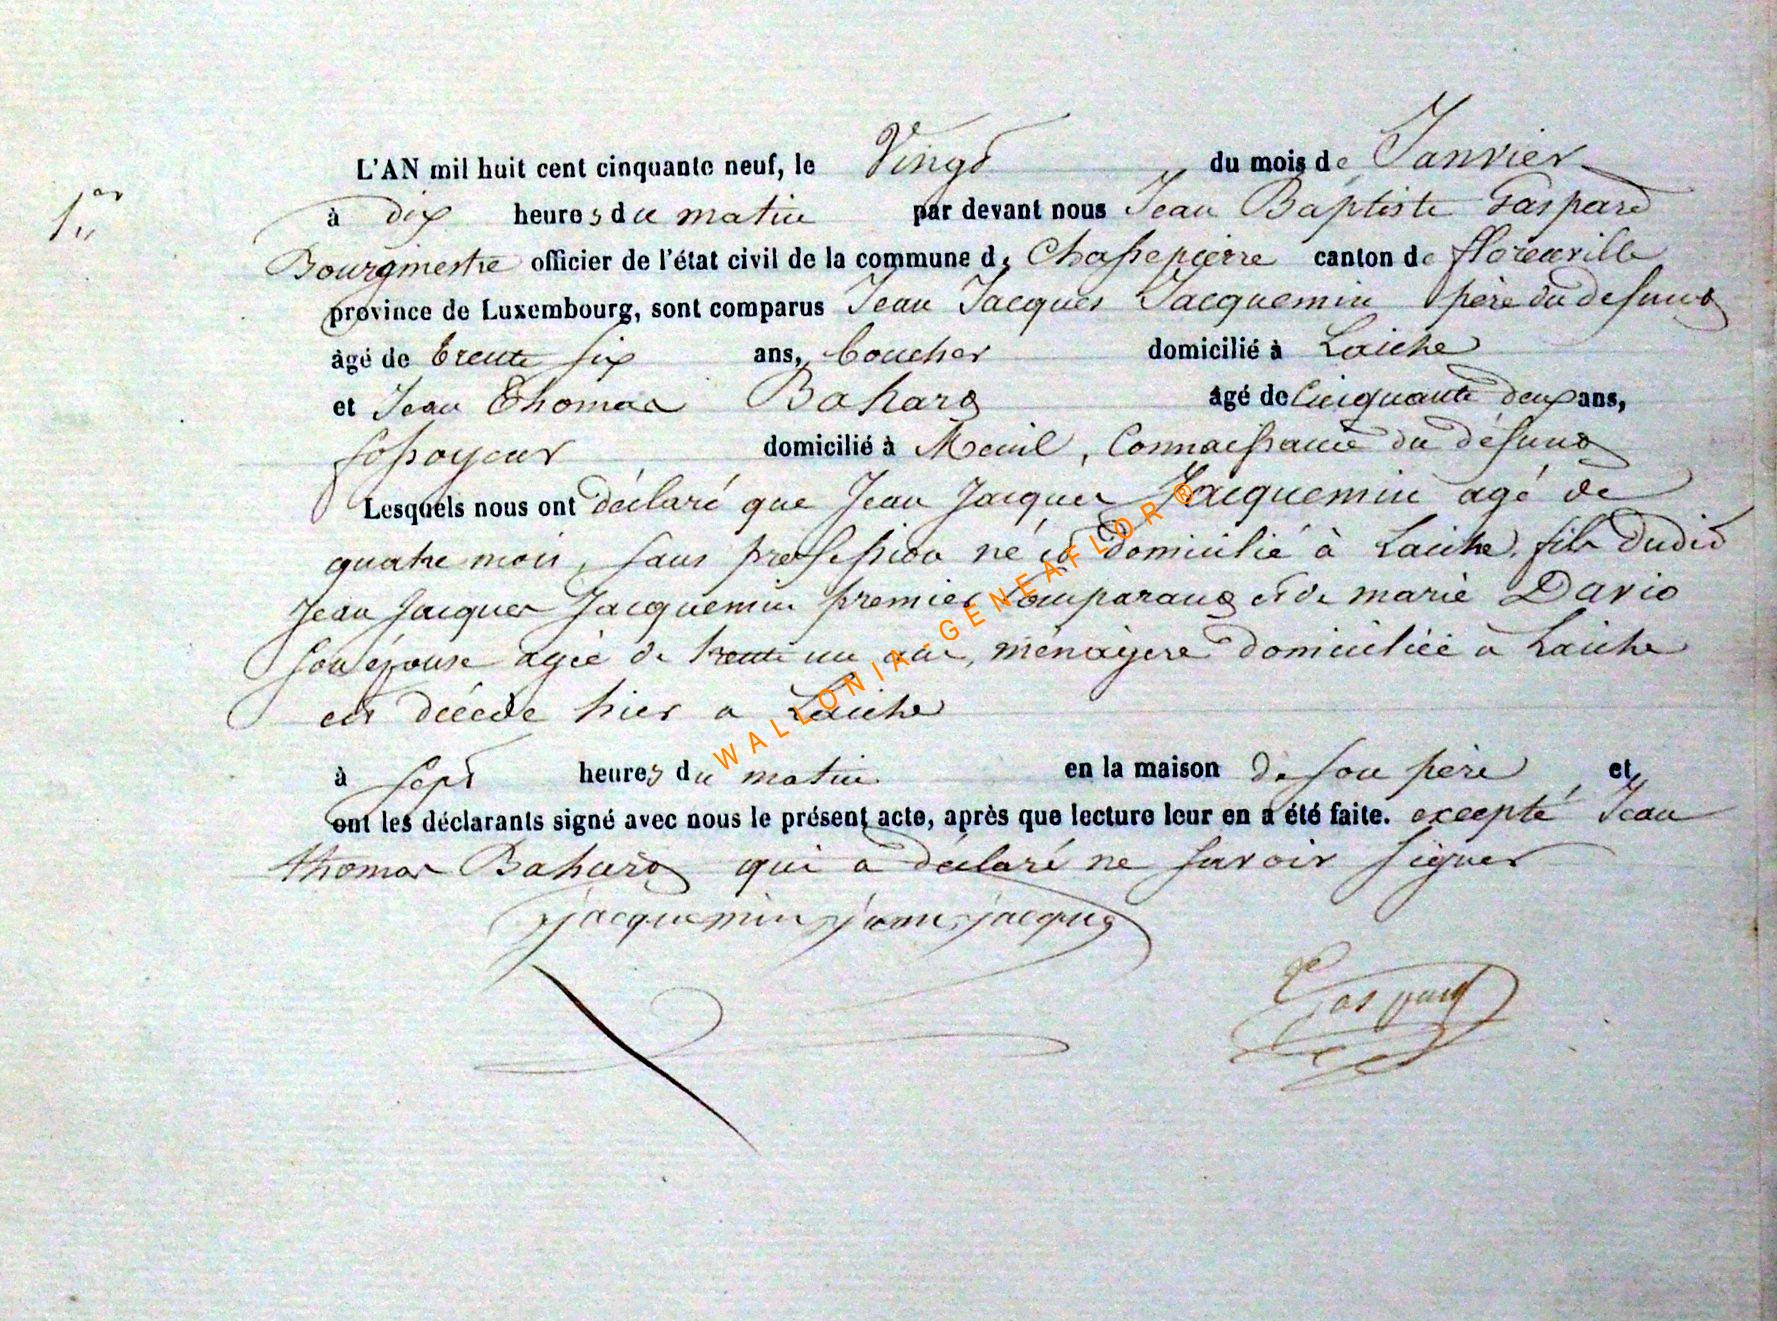 1er
L'AN mil huit cent cinquante neuf, le Vingt du mois de Janvier
à dix heures du matin par devant nous Jean Baptiste Gaspard
Bourgmestre officier de l'état civil de la commune de Chassepierre canton de florenville
province de Luxembourg, sont comparus Jean Jacques Jacquemin père du defunt
âgé de trente six ans, boucher domicilié à Laiche
et Jean Thomas Bahard âgé de Cinquante deux ans,
fossoyeur domicilié à Menil, Connaissance du défunt
Lesquels nous ont déclaré que Jean Jacques Jacquemin agé de
quatre mois, sans proffession né et domicilié à Laiche, fils dudit
Jean Jacques Jacquemin premier Comparant et de marie Davio
son épouse agée de trente un ans, ménagère domiciliée à Laiche
est décédé hier a Laiche
à sept heures du matin en la maison de son père et
ont les déclarants signé avec nous le présent acte, après que lecture leur en a été faite. excepté Jean
thomas Bahard qui a déclaré ne savoir signer
jacquemin jean jacques
Gaspard
WALLONIA-GENEAFLOR ®